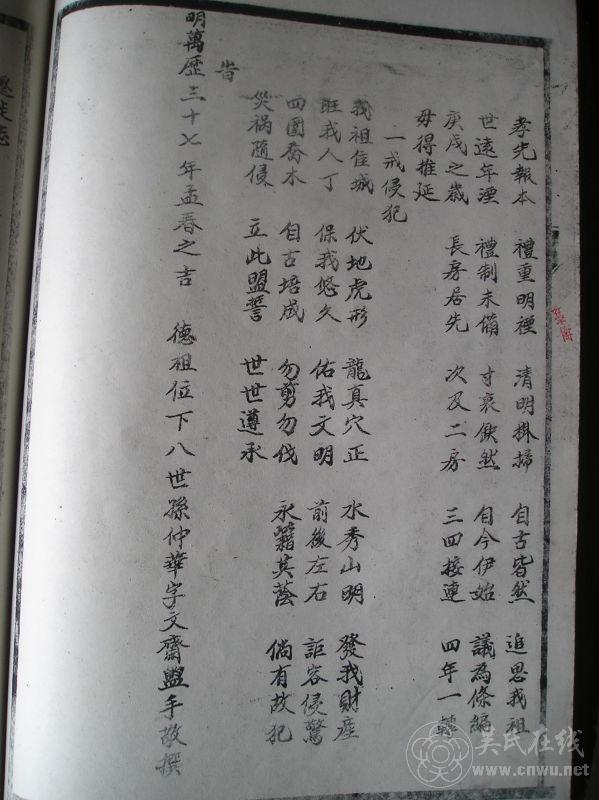 孝先報本　禮重明禋　清明掛掃　自古皆然　追思我祖
世遠年湮　禮制未備　寸衷歉然　自今伊始　議為條編
庚戌之歲　長房居先　次及二房　三四接連　四年一轉
毋得推延
一戒侵犯
我祖住城　伏地虎形　龍真穴正　水秀山明　發我財產
旺我人丁　保我悠久　佑我文明　前後左右　詎容侵驚
四圍喬木　自古培成　勿剪勿伐　永籍其蔭　倘有故犯
災禍隨侵　立此盟誓　世世遵承
旹
明萬歷三十七年孟春之吉　德祖位下八世孫仲華字文齋盥手敬撰
吴氏在线
www.cnwu.net